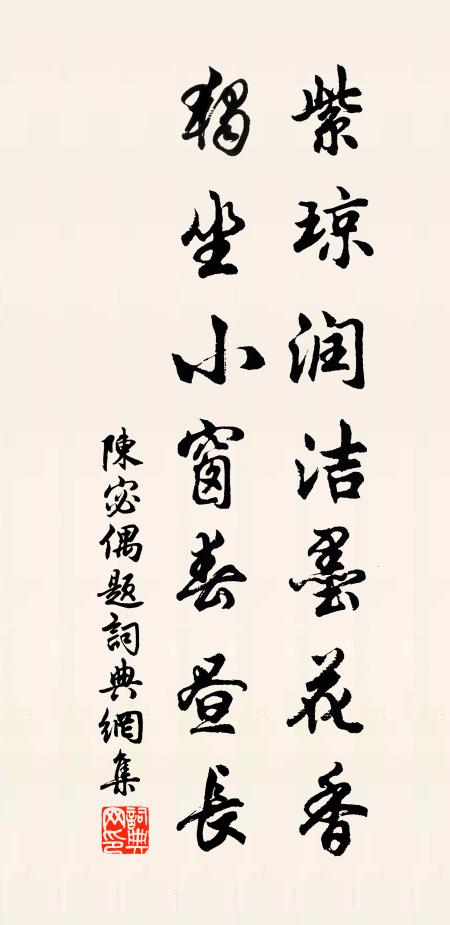 紫琼润洁墨花香
独坐小窗春昼长
陳宓偶题詞典網集
詞典网印